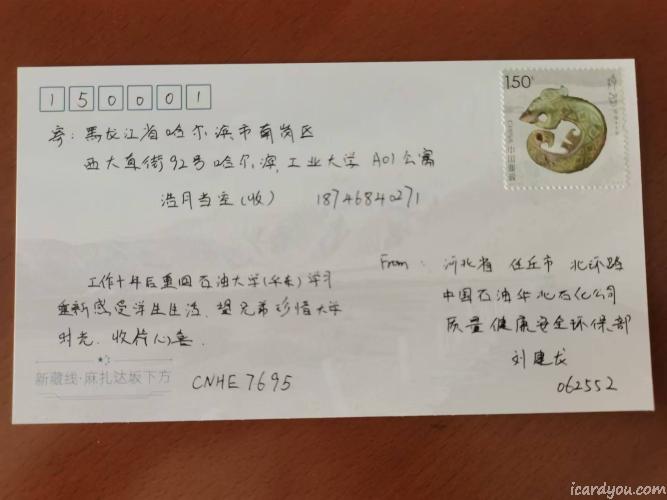 150001
寄：黑龙江省哈尔滨市南岗区
西大直街92号哈尔滨工业大学 A01公寓
浩月当空（收） 18746840271
150分
CHINA 中国邮政
From: 河北省 任丘市 北环路
中国石油华北石化公司
质量健康安全环保部
刘建龙
062552
工作十年后重回石油大学（华东）学习
重新感受学生生活，望兄弟珍惜大学
时光．收片心喜．
新藏线·麻扎达坂下方
CNHE7695
icardyou.com